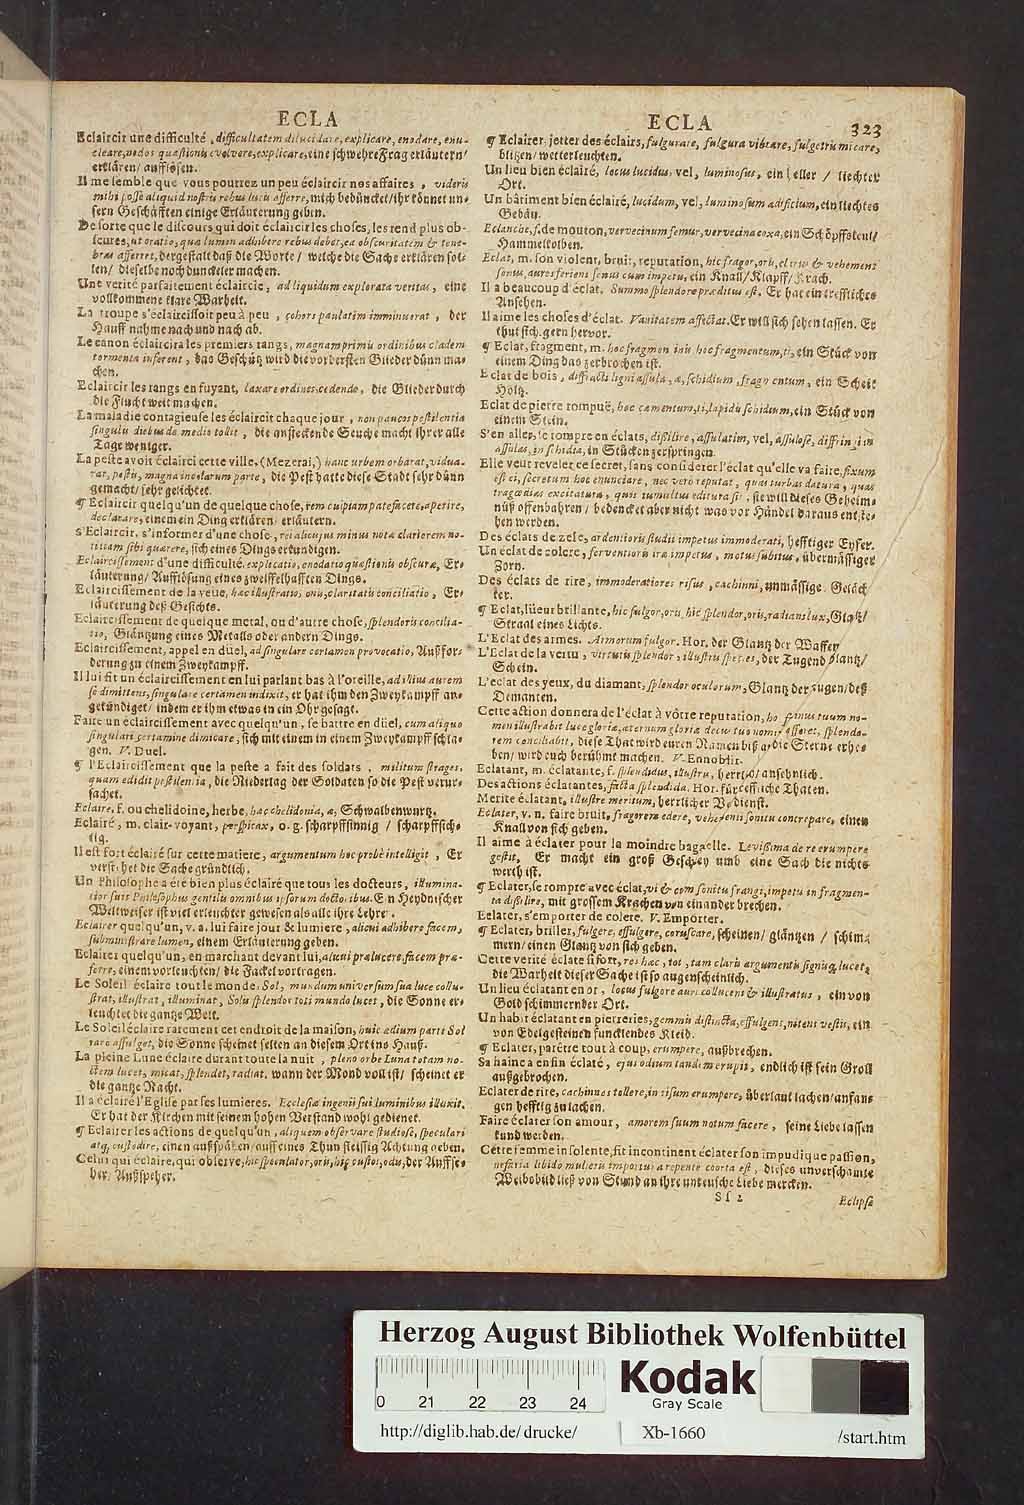 ECLA
Eclaircir une difficulté, difficultatem dilucidare, explicare, enodare, enu-
cleare, nodos quæstionis evolvere, explicare, eine schwehre Frag erläutern/
erklären/ aufflösen.
Il me semble que vous pourrez un peu éclaircir nos affaires, videris
mihi posse aliquid nostris rebus lucis afferre, mich bedüncket/ ihr könnet un-
sern Geschäfften einige Erläuterung geben.
De sorte que le discours qui doit éclaircir les choses, les rend plus ob-
scures, ut oratio, qua lumen adhibere rebus debet, ea obscuritatem & tene-
bras afferret, dergestalt daß die Worte/ welche die Sache erklären sol-
len/ dieselbe noch dunckeler machen.
Une verité parfaitement éclaircie, ad liquidum explorata veritas, eine
vollkommene klare Warheit.
La troupe s'éclaircissoit peu à peu, cohors paulatim imminuerat, der
Hauff nahme nach und nach ab.
Le canon éclaircira les premiers rangs, magnam primis ordinibus cladem
tormenta inferent, das Geschütz wird die vordersten Glieder dünn ma-
chen.
Eclaircir les rangs en fuyant, laxare ordines cedendo, die Glieder durch
die Flucht weit machen.
La maladie contagieuse les éclaircit chaque jour, non paucos pestilentia
singulis diebus de medio tollit, die ansteckende Seuche macht ihrer alle
Tage weniger.
La peste avoit éclairci cette ville, (Mezerai,) hanc urbem orbarat, vidua-
rat, pestis, magna incolarum parte, die Pest hatte diese Stadt sehr dünn
gemacht/ sehr gelichtet.
¶ Eclaircir quelqu'un de quelque chose, rem cuipiam patefacere, aperire,
declarare, einem ein Ding erklären/ erläutern.
s'Eclaircir, s'informer d'une chose, rei alicujus minus notæ clariorem no-
titiam sibi quærere, sich eines Dings erkundigen.
Eclaircissement d'une difficulté, explicatio, enodatio quæstionis obscuræ, Er-
läuterung/ Aufflösung eines zweiffelhafften Dings.
Eclaircissement de la veuë, hæc illustratio, onis, claritatis conciliatio, Er-
läuterung deß Gesichts.
Eclaircissement de quelque metal, ou d'autre chose, splendoris concilia-
tio, Gläntzung eines Metalls oder andern Dings.
Eclaircissement, appel en düel, ad singulare certamen provocatio, Außfor-
derung zu einem Zweykampff.
Il lui fit un éclaircissement en lui parlant bas à l'oreille, ad illius aurem
se dimittens, singulare certamen indixit, er hat ihm den Zweykampff an-
gekündiget/ indem er ihm etwas in ein Ohr gesagt.
Faire un éclaircissement avec quelqu'un, se battre en düel, cum aliquo
singulari certamine dimicare, sich mit einem in einem Zweykampff schla-
gen. V. Duel.
¶ l'Eclaircissement que la peste a fait des soldats, militum strages,
quam edidit pestilentia, die Niederlag der Soldaten so die Pest verur-
sachet.
Eclaire, f. ou chelidoine, herbe, hæc chelidonia, æ, Schwalbenwurtz.
Eclairé, m. clair-voyant, perspicax, o. g. scharpffsinnig / scharpffsich-
tig.
Il est fort éclairé sur cette matiere, argumentum hoc probè intelligit, Er
verstehet die Sache gründlich.
Un Philosophe a été bien plus éclairé que tous les docteurs, illumina-
tior fuit Philosophus gentilis omnibus ipsorum doctoribus. Ein Heydnischer
Weltweiser ist viel erleuchter gewesen als alle ihre Lehrer.
Eclairer quelqu'un, v. a. lui faire jour & lumiere, alicui adhibere facem,
subministrare lumen, einem Erläuterung geben.
Eclairer quelqu'un, en marchant devant lui, alicui prælucere, facem præ-
ferre, einem vorleuchten/ die Fackel vortragen.
Le Soleil éclaire tout le monde. Sol, mundum universum sua luce collu-
strat, illustrat, illuminat, Solis splendor toti mundo lucet, die Sonne er-
leuchtet die gantze Welt.
Le Soleil éclaire rarement cet endroit de la maison, huic ædium parti Sol
raro affulget, die Sonne scheinet selten an diesem Ort ins Hauß.
La pleine Lune éclaire durant toute la nuit, pleno orbe Luna totam no-
ctem lucet, micat, splendet, radiat. wann der Mond voll ist/ scheinet er
die gantze Nacht.
Il a éclairé l'Eglise par ses lumieres. Ecclesiæ ingenii sui luminibus illuxit.
Er hat der Kirchen mit seinem hohen Verstand wohl gedienet.
¶ Eclairer les actions de quelqu'un, aliquem observare studiose, speculari
atq; custodire, einen außspähen/ auff eines Thun fleissig Achtung geben.
Celui qui éclaire, qui observe, hic speculator, oris, hic custos, odis, der Auffse-
her/ Außspeher.
ECLA 323
¶ Eclairer, jetter des éclairs, fulgurare, fulgura vibrare, fulgetris micare,
blitzen/ wetterleuchten.
Un lieu bien éclairé, locus lucidus, vel, luminosus, ein heller / liechter
Ort.
Un bâtiment bien éclairé, lucidum, vel, luminosum ædificium, ein liechtes
Gebäu.
Eclanche, f. de mouton, vervecinum femur, vervecina coxa, ein Schöpffskeul/
Hammelkolben.
Eclat, m. son violent, bruit, reputation, hic fragor, oris, clarus & vehemens
sonus, aures feriens sonus cum impetu, ein Knall/ Klapff/ Krach.
Il a beaucoup d'éclat. Summo splendore præditus est. Er hat ein treffliches
Ansehen.
Il aime les choses d'éclat. Vanitatem affectat. Er will sich sehen lassen. Er
thut sich gern hervor.
¶ Eclat, fragment, m. hoc fragmen inis hoc fragmentum, ti, ein Stück von
einem Ding das zerbrochen ist.
Eclat de bois, diffracti ligni assula, æ, schidium, fragmentum, ein Scheit
Holtz.
Eclat de pierre rompuë, hoc cæmentum, ti, lapidis schidium, ein Stück von
einem Stein.
S'en aller, se rompre en éclats, dissilire, assulatim, vel, assulose, diffringi in
assulas, in schidia, in Stücken zerspringen.
Elle veut reveler ce secret, sans considerer l'éclat qu'elle va faire, fixum
est ei, secretum hoc enunciare, nec vero reputat, quas turbas datura, quas
tragœdias excitatura, quos tumultus editura sit, sie will dieses Geheim-
nüß offenbahren/ bedencket aber nicht was vor Händel daraus entste-
hen werden.
Des éclats de zele, ardentioris studii impetus immoderati, hefftiger Eyfer.
Un éclat de colere, ferventioris iræ impetus, motus subitus, übermässiger
Zorn.
Des éclats de rire, immoderatiores risus, cachinni, unmässige Geläch-
ter.
¶ Eclat, lüeur brillante, hic fulgor, oris, hic splendor, oris, radians lux, Glantz/
Straal eines Lichts.
L'Eclat des armes. Armorum fulgor. Hor. der Glantz der Waffen
L'Eclat de la vertu, virtutis splendor, illustris species, der Tugend Glantz/
Schein.
L'eclat des yeux, du diamant, splendor oculorum, Glantz der Augen/ deß
Demanten.
Cette action donnera de l'éclat à vôtre reputation, hoc facinus tuum no-
men illustrabit luce gloriæ, æternum gloriæ decus tuo nomini afferet, splendo-
rem conciliabit, diese That wird euren Namen biß an die Sterne erhe-
ben/ wird euch berühmt machen. V. Ennoblir.
Eclatant, m. éclatante, f. splendidus, illustris, herrlich/ ansehnlich.
Des actions éclatantes, facta splendida. Hor. fürtreffliche Thaten.
Merite éclatant, illustre meritum, herrlicher Verdienst.
Eclater, v. n. faire bruit, fragorem edere, vehementi sonitu concrepare, einen
Knall von sich geben.
Il aime à éclater pour la moindre bagatelle. Levissima de re erumpere
gestit, Er macht ein groß Geschrey umb eine Sach die nichts
werth ist.
¶ Eclater, se rompre avec éclat, vi & cum sonitu frangi, impetu in fragmen-
ta dissilire, mit grossem Krachen von einander brechen.
Eclater, s'emporter de colere. V. Emporter.
¶ Eclater, briller, fulgere, effulgere, coruscare, scheinen/ gläntzen / schim-
mern/ einen Glantz von sich geben.
Cette verité éclate si fort, res hæc, tot, tam claris argumentis signisq; lucet,
die Warheit dieser Sache ist so augenscheinlich.
Un lieu éclatant en or, locus fulgore auri collucens & illustratus, ein von
Gold schimmernder Ort.
Un habit éclatant en pierreries, gemmis distincta, effulgent, nitens vestis, ein
von Edelgesteinen funcklendes Kleid.
¶ Eclater, parétre tout à coup, erumpere, außbrechen.
Sa haine a enfin éclaté, ejus odium tandem erupit, endlich ist sein Groll
außgebrochen.
Eclater de rire, cachinnos tollere, in risum erumpere, überlaut lachen/ anfan-
gen hefftig zu lachen.
Faire éclater son amour, amorem suum notum facere, seine Liebe lassen
kund werden.
Cette femme insolente, fit incontinent éclater son impudique passion,
nefaria libido mulieris importunæ repente coorta est, dieses unverschamte
Weibsbild ließ von Stund an ihre unkeusche Liebe mercken.
Ss 2
Eclipse
Herzog August Bibliothek Wolfenbüttel
0 21 22 23 24
Kodak
Gray Scale
http://diglib.hab.de/drucke/ Xb-1660 /start.htm